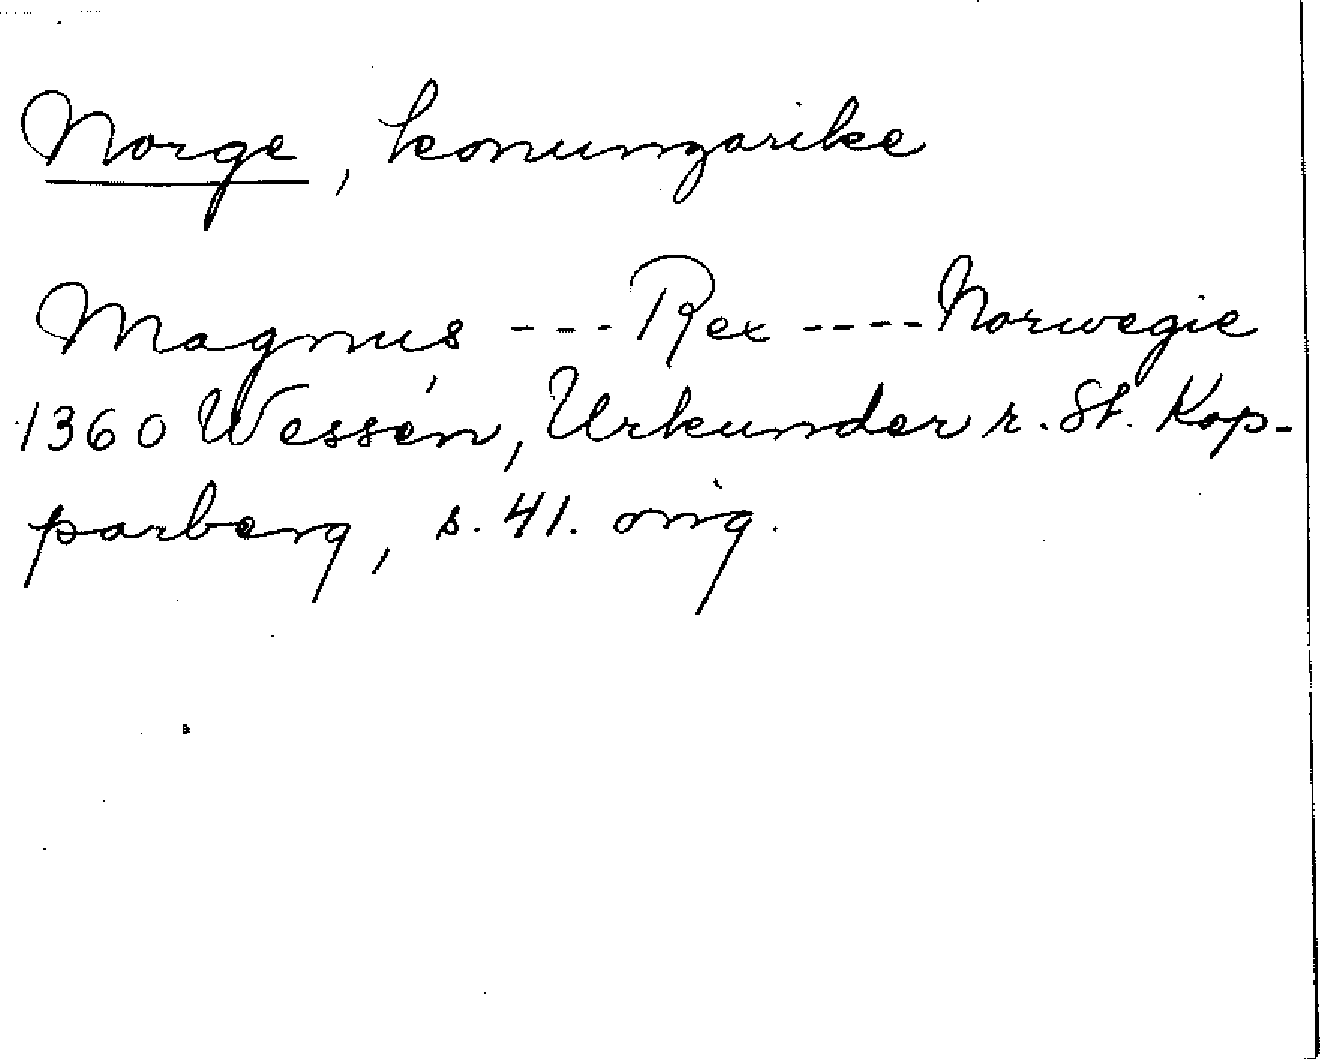 Norge, konungarike
Magnus --- Rex ---- Norwegie
1360 Wessén, Urkunder r. St. Kop-
parberg, s. 41. orig.